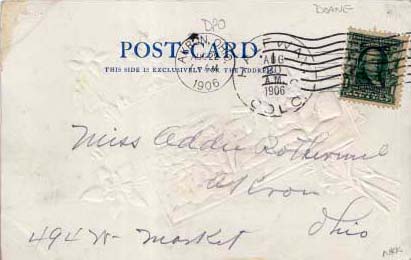 DPO
DOANE
POST-CARD.
THIS SIDE IS EXCLUSIVELY FOR THE ADDRESS.
AKRON
1906
AUG
A.M.
1906
OHIO
Miss Addie Rothermel
Akron
Ohio
494 W. Market